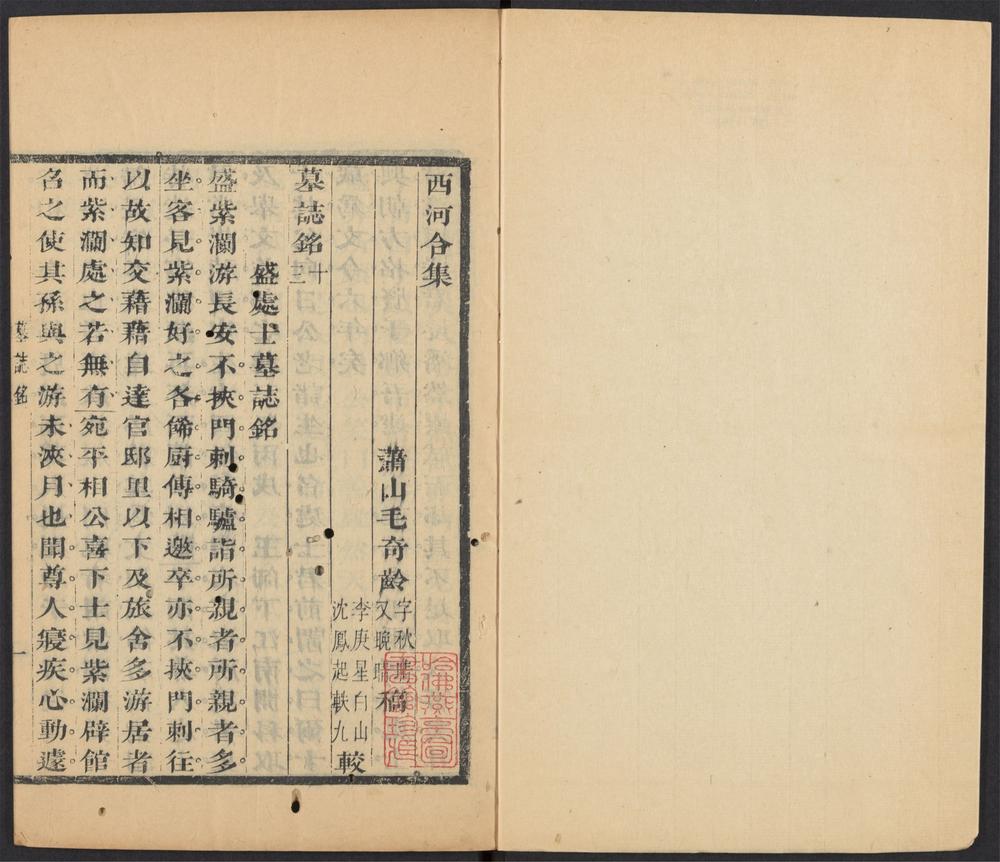 西河合集
蕭山毛奇齡字秋晴又晚晴稿
李庚星白山沈鳳起軼九較
墓誌銘十三
盛處士墓誌銘
盛紫瀾游長安不挾門刺騎驢詣所親者所親者多
坐客見紫瀾好之各飾厨傳相邀卒亦不挾門刺往
以故知交藉藉自達官邸里以下及旅舍多游居者
而紫瀾處之若無有宛平相公喜下士見紫瀾辟館
名之使其孫與之游未浹月也聞尊人寢疾心動遽
墓誌銘
一
哈佛燕京